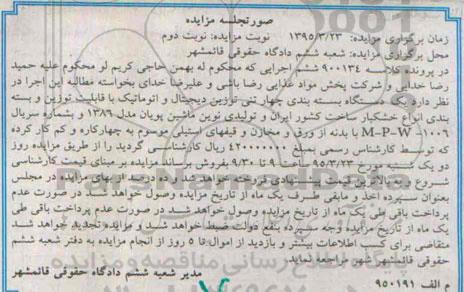 صورتجلسه مزایده
زمان برگزاری مزایده: ۱۳۹۵/۳/۲۳ نوبت مزایده: نوبت دوم
محل برگزاری مزایده: شعبه ششم دادگاه حقوقی قائمشهر
در پرونده کلاسه ۹۰۰۱۳۴ ششم اجرایی که محکوم له بهمن حاجی کریم لو محکوم علیه حمید
رضا خدایی و شرکت پخش مواد غذایی رضا باشی و علیرضا خدای بخواسته مطالبه این اجرا در
نظر دارد یک دستگاه بسته بندی چهار تنی توزین دیجیتال و اتوماتیک با قابلیت توزین و بسته
بندی انواع خشکبار ساخت کشور ایران و تولیدی نوین ماشین پویان مدل ۱۳۸۶ و بشماره سریال
M-P-W-۱۰۰۶ با بدنه از ورق و مخازن و قیفهای استیل موسوم به چهارکاره و کم کار کرده
که توسط کارشناس رسمی بمبلغ ۴۲۰۰۰۰۰۰۰ ریال کارشناسی گردید را از طریق مزایده روز
دو یک شنبه مورخ ۹۵/۳/۲۳ ساعت ۹ تا ۹/۳۰ بفروش برساند مزایده بر مبنای قیمت کارشناسی
شروع و به بالاترین قیمت پیشنهادی فروخته خواهد شد و ده درصد از بهای مزایده در مجلس
بعنوان سپرده اخذ و مابقی ظرف یک ماه از تاریخ مزایده وصول خواهد شد در صورت عدم
پرداخت باقی طی یک ماه از تاریخ مزایده وصول خواهد شد در صورت عدم پرداخت باقی طی
یک ماه از تاریخ مزایده وجه سپرده بنفع دولت ضبط خواهد شد و مزایده تجدید خواهد شد
متقاضی برای کسب اطلاعات بیشتر و بازدید از اموال تا ۵ روز از انجام مزایده به دفتر شعبه ششم
حقوقی قائمشهر شهر مراجعه نماید
مدیر شعبه ششم دادگاه حقوقی قائمشهر
م الف ۹۵۰۱۹۱